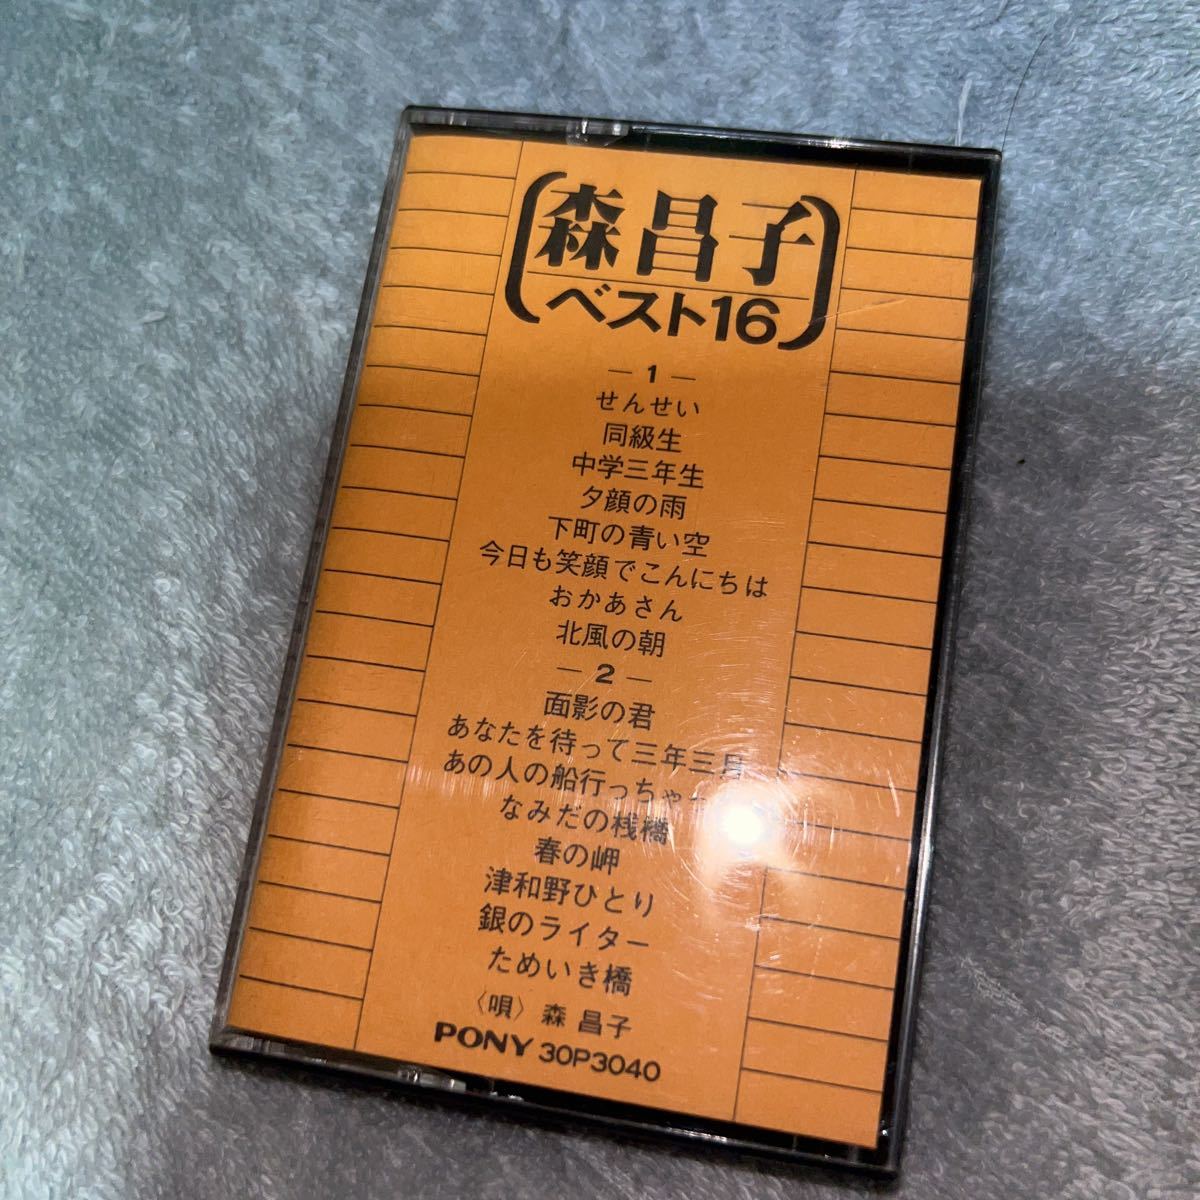 森昌子
ベスト16
— 1 —
せんせい
同級生
中学三年生
夕顔の雨
下町の青い空
今日も笑顔でこんにちは
おかあさん
北風の朝
— 2 —
面影の君
あなたを待って三年三月
あの人の船行っちゃった
なみだの桟橋
春の岬
津和野ひとり
銀のライター
ためいき橋
〈唄〉森 昌子
PONY 30P3040